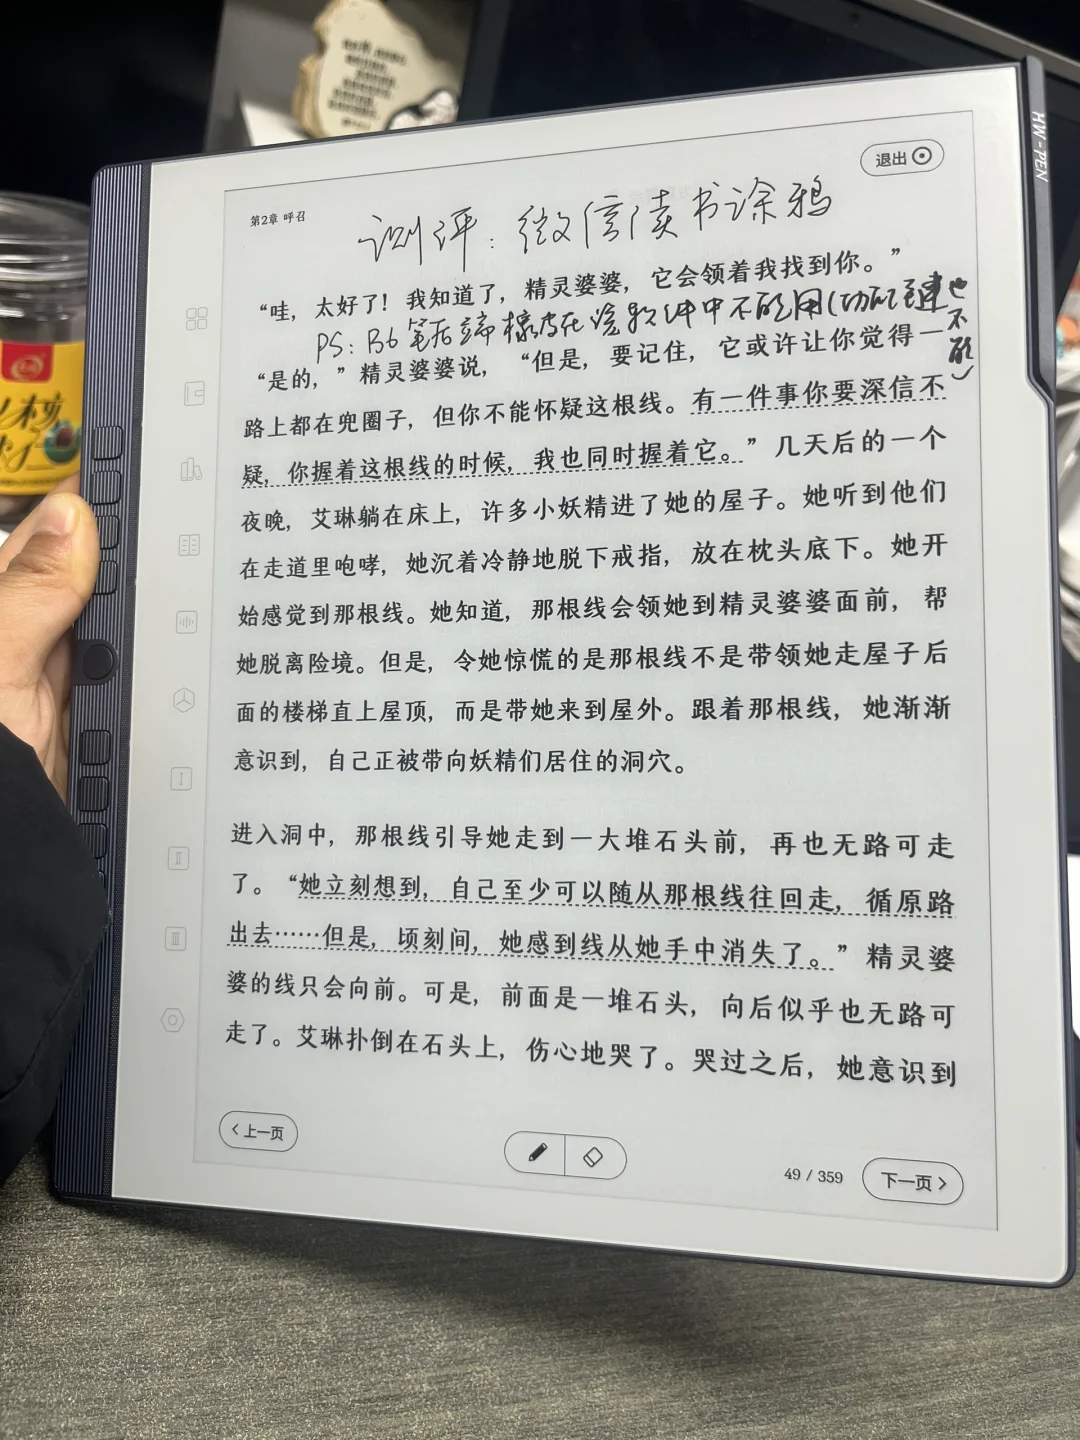 HW-PEN
退出
第2章 呼召
测评：微信读书涂鸦
“哇，太好了！我知道了，精灵婆婆，它会领着我找到你。”
PS：B6笔后端橡皮在这软件中不能用（功能键也不能）
“是的，”精灵婆婆说，“但是，要记住，它或许让你觉得一
路上都在兜圈子，但你不能怀疑这根线。有一件事你要深信不
疑，你握着这根线的时候，我也同时握着它。”几天后的一个
夜晚，艾琳躺在床上，许多小妖精进了她的屋子。她听到他们
在走道里咆哮，她沉着冷静地脱下戒指，放在枕头底下。她开
始感觉到那根线。她知道，那根线会领她到精灵婆婆面前，帮
她脱离险境。但是，令她惊慌的是那根线不是带领她走屋子后
面的楼梯直上屋顶，而是带她来到屋外。跟着那根线，她渐渐
意识到，自己正被带向妖精们居住的洞穴。
进入洞中，那根线引导她走到一大堆石头前，再也无路可走
了。“她立刻想到，自己至少可以随从那根线往回走，循原路
出去……但是，顷刻间，她感到线从她手中消失了。”精灵婆
婆的线只会向前。可是，前面是一堆石头，向后似乎也无路可
走了。艾琳扑倒在石头上，伤心地哭了。哭过之后，她意识到
上一页
49 / 359
下一页